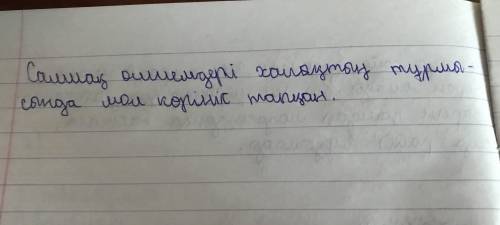 Салмақ өлшемдері халықтың тұрмы-
сында мол көрініс тапқан.